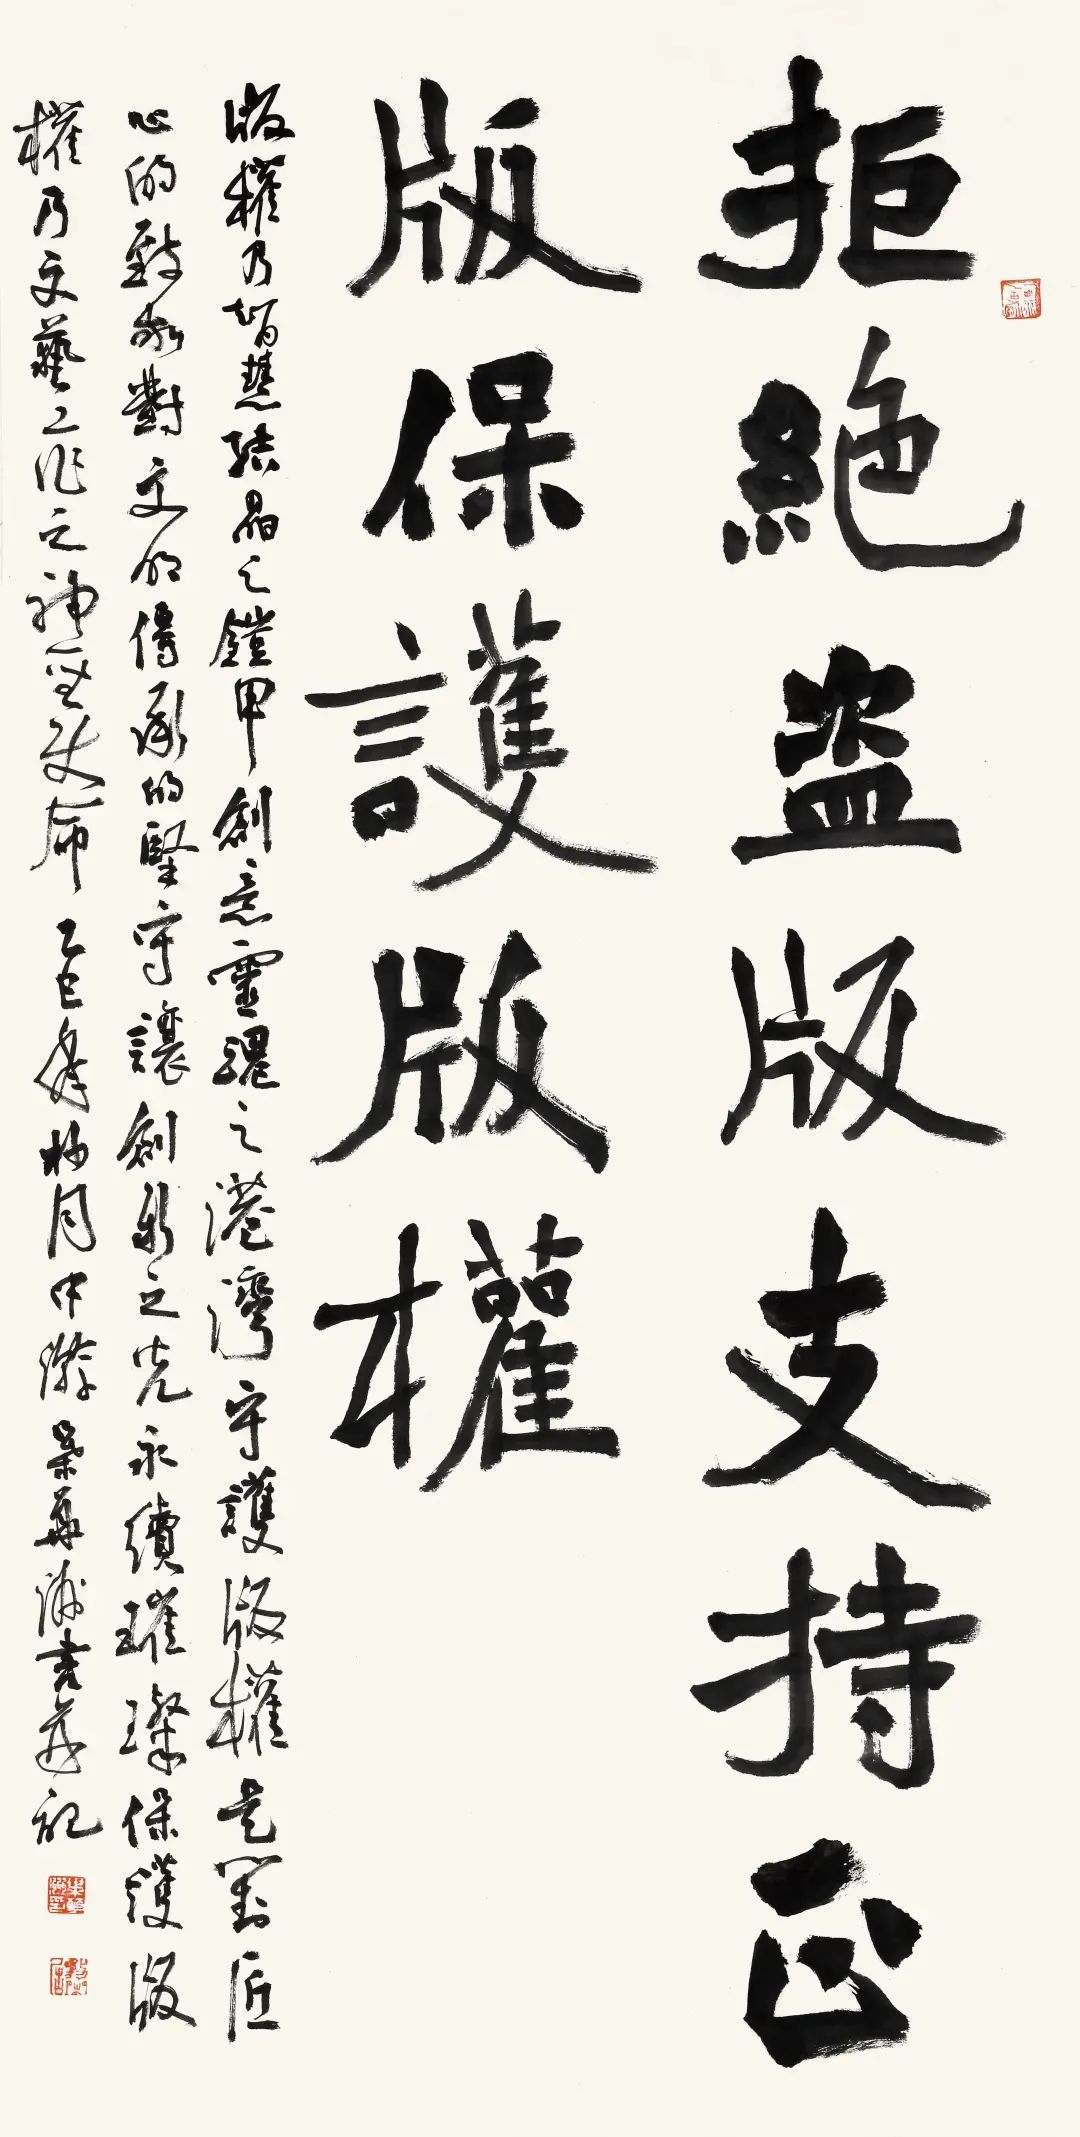 拒絕盜版支持正
版保護版權
版權乃智慧結晶之鎧甲創意靈躍之港灣守護版權是對匠
心的致敬對文明傳承的堅守讓創新之光永續璀璨保護版
權乃文藝工作之神聖使命乙巳年杪月中澣葉華浦書并記